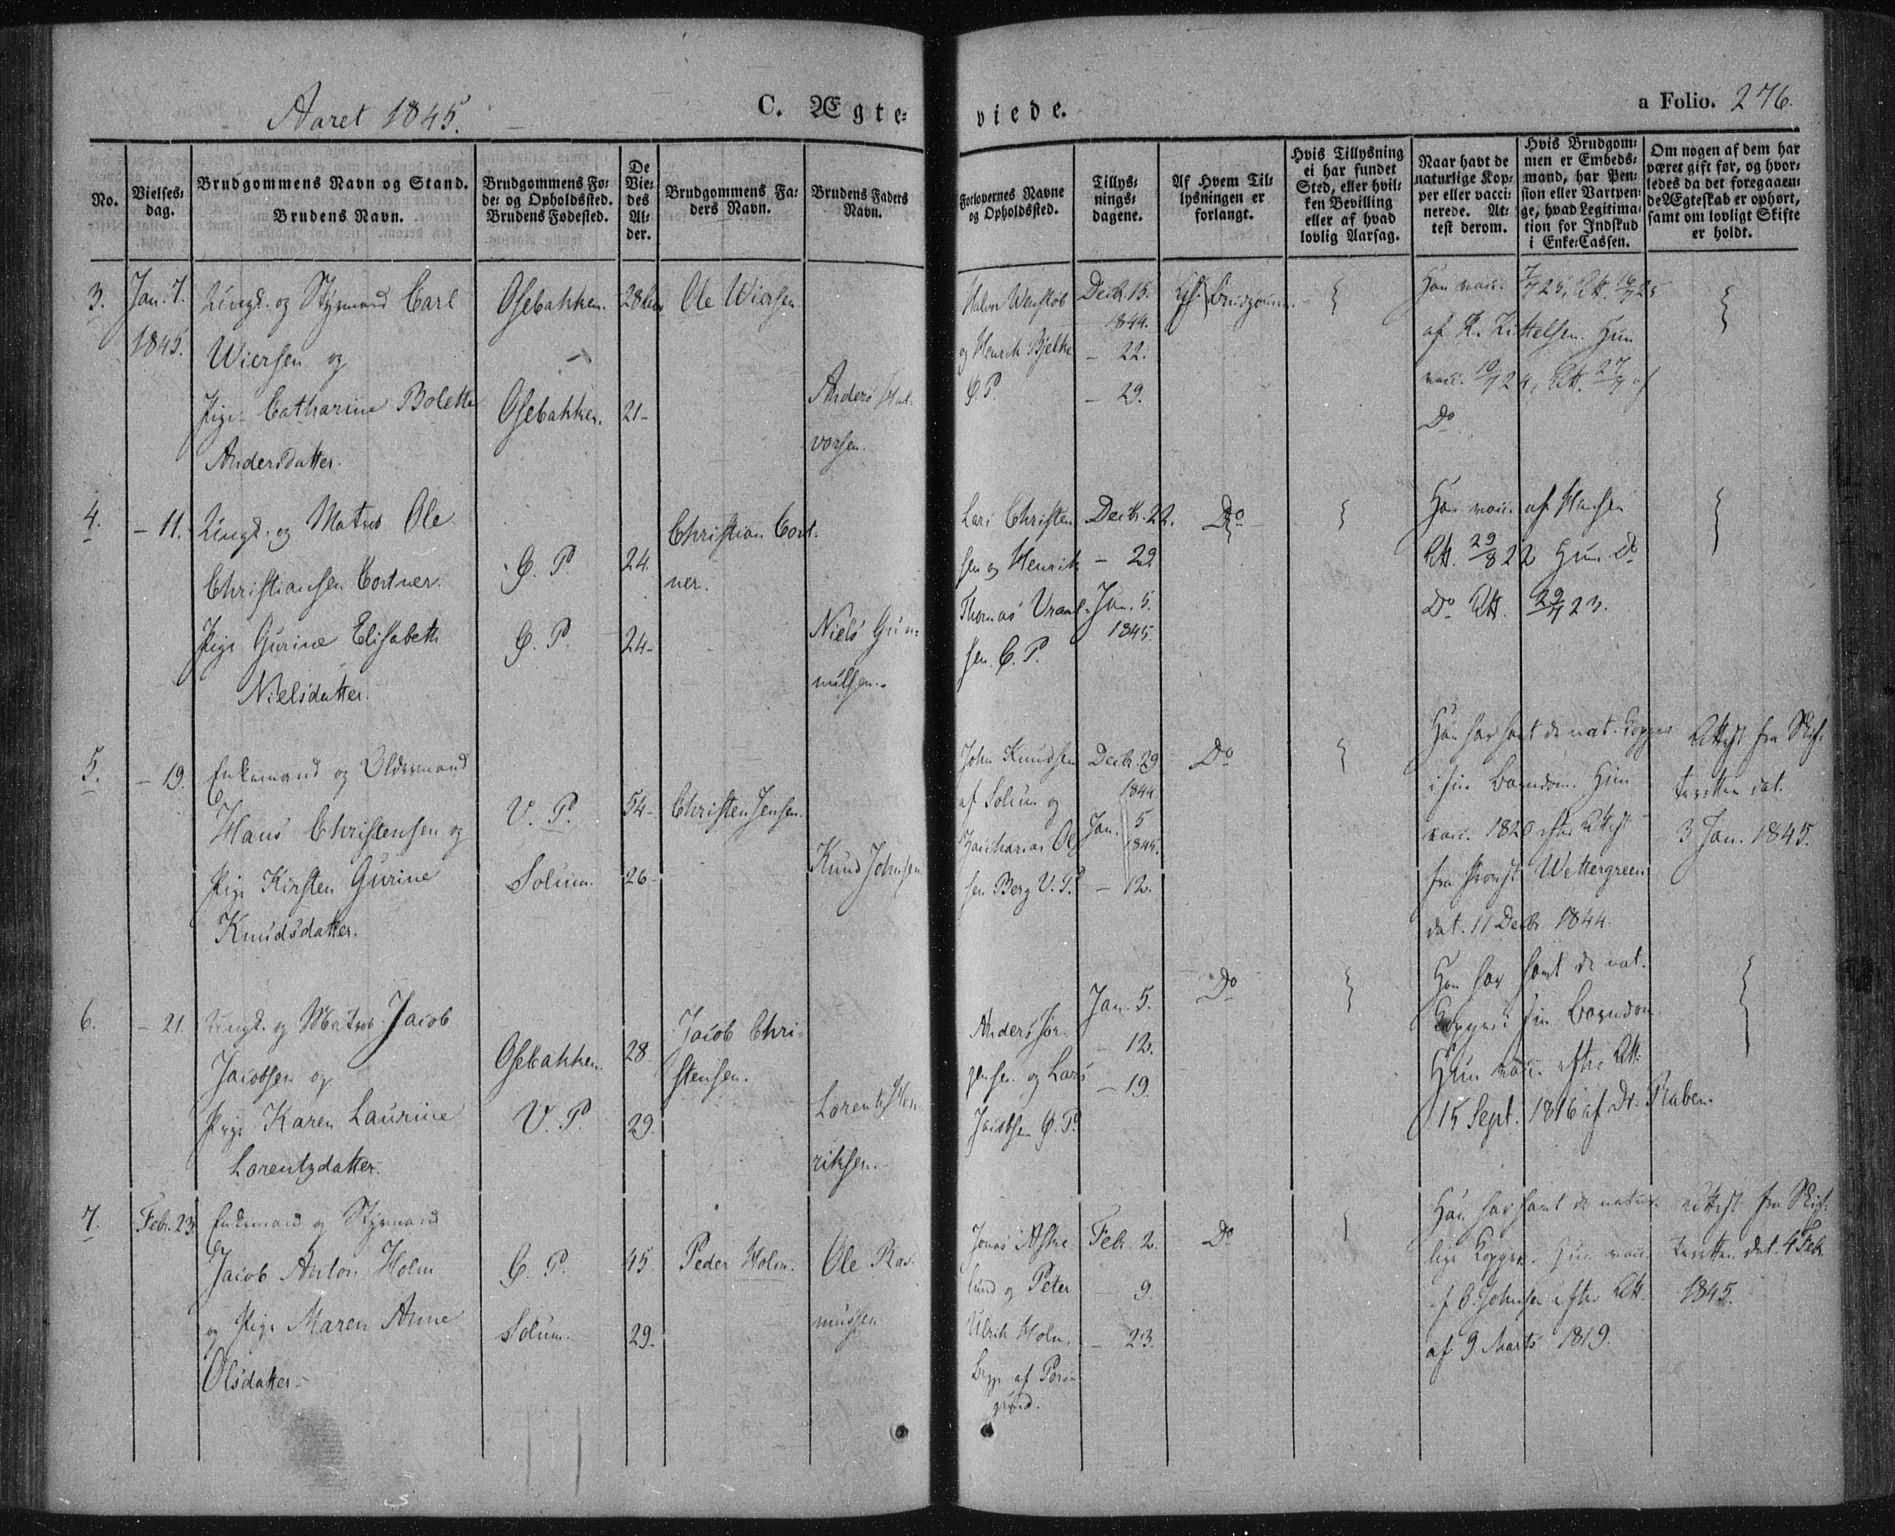 Aaret 1845.
C. Ægte-
viede.
a Folio. 276.
No.
Vielses-
dag.
Brudgommens Navn og Stand.
Brudens Navn.
Brudgommens Fø-
de- og Opholdssted.
Brudens Fødested.
De
Vie-
des
Al-
der.
Brudgommens Fa-
ders Navn.
Brudens Faders
Navn.
Forlovernes Navne
og Opholdssted.
Tillys-
nings-
dagene.
Af Hvem Til-
lysningen er
forlangt.
Hvis Tillysning
ei har fundet
Sted, eller hvil-
ken Bevilling
eller af hvad
lovlig Aarsag.
Naar havt de
naturlige Kop-
per eller vacci-
nerede. At-
test derom.
Hvis Brudgom-
men er Embeds-
mand, har Pen-
sion eller Vartpen-
ge, hvad Legitima-
tion for Indskud
i Enke-Cassen.
Om nogen af dem har
været gift før, og hvor-
ledes da det foregaaen-
de Ægteskab er ophørt,
samt om lovligt Skifte
er holdt.
3.
Jan. 7.
1845.
Ungk. og Styrmand Carl
Wiersen og
Pige Catharine Bolette
Andersdatter.
Osebakken.
Osebakken.
28
21-
Ole Wiersen
Anders Hal-
vorsen.
Halvor
og Henrik Bjelke
C. P.
Decb. 15.
1844.
- 22.
- 29.
Brudgommen.
Han vacc. 7/7 25, Att. 16/7 25
af K. Kittelsen. Hun
vacc. 19/7 24, Att. 27/7 af
Do
4.
- 11.
Ungk. og Matros Ole
Christiansen Cortner.
Pige Gurine Elisabeth
Nielsdatter.
C. P.
C. P.
24.
24-
Christian Cort-
ner.
Niels Gun-
nulsen.
Lars Christen
sen og Henrik
Thomas
sen. C. P.
Decb. 22.
- 29
Jan. 5.
1845.
Do
Han vacc. af Hansen
Att. 29/8 22 Hun Do
Do Att. 29/7 23.
5.
- 19.
Enkemand og Oldermand
Hans Christensen og
Pige Kirsten Gurine
Knudsdatter.
V. P.
Solum.
54-
26-
Christen Jensen.
Knud Johnsen
John Knudsen
af Solum og
Zacharias Ol
sen Berg V. P.
Decb. 29
1844
Jan. 5
1845.
- 12.
Do
Han har havt de nat. Kopper
i sin Barndom. Hun
vacc. 1820 efter Attest
fra Provst Wettergreen
dat. 11 Decb. 1844.
Attest fra Skif-
teretten dat.
3 Jan. 1845.
6.
- 21.
Ungk. og Matros Jacob
Jacobsen og
Pige Karen Laurine
Lorentzdatter.
Osebakken.
V. P.
28-
29.
Jacob Chri-
stensen.
Lorentz Hen-
riksen.
Anders Jør-
gensen og Lars
Jacobsen C. P.
Jan. 5.
- 12.
- 19.
Do
Han har havt de nat.
Kopper i sin Barndom.
Hun vacc. efter Att.
15 Sept. 1816 af Dr. Raben.
7.
Febr. 23.
Enkemand og Styrmand
Jacob Anton Holm
og Pige Maren Anne
Olsdatter.
C. P.
Solum.
45
29.
Peder Holm.
Ole Ras-
mussen
Jonas Aske
lund og Peter
Ulrik Holm,
Begge af Pors-
grund.
Feb. 2.
- 9.
- 23.
Do
Han har havt de natur-
lige Kopper. Hun vacc.
af O. Johnsen efter Att.
af 9 Marts 1819.
Attest fra Skif-
teretten dat. 4 Feb.
1845.